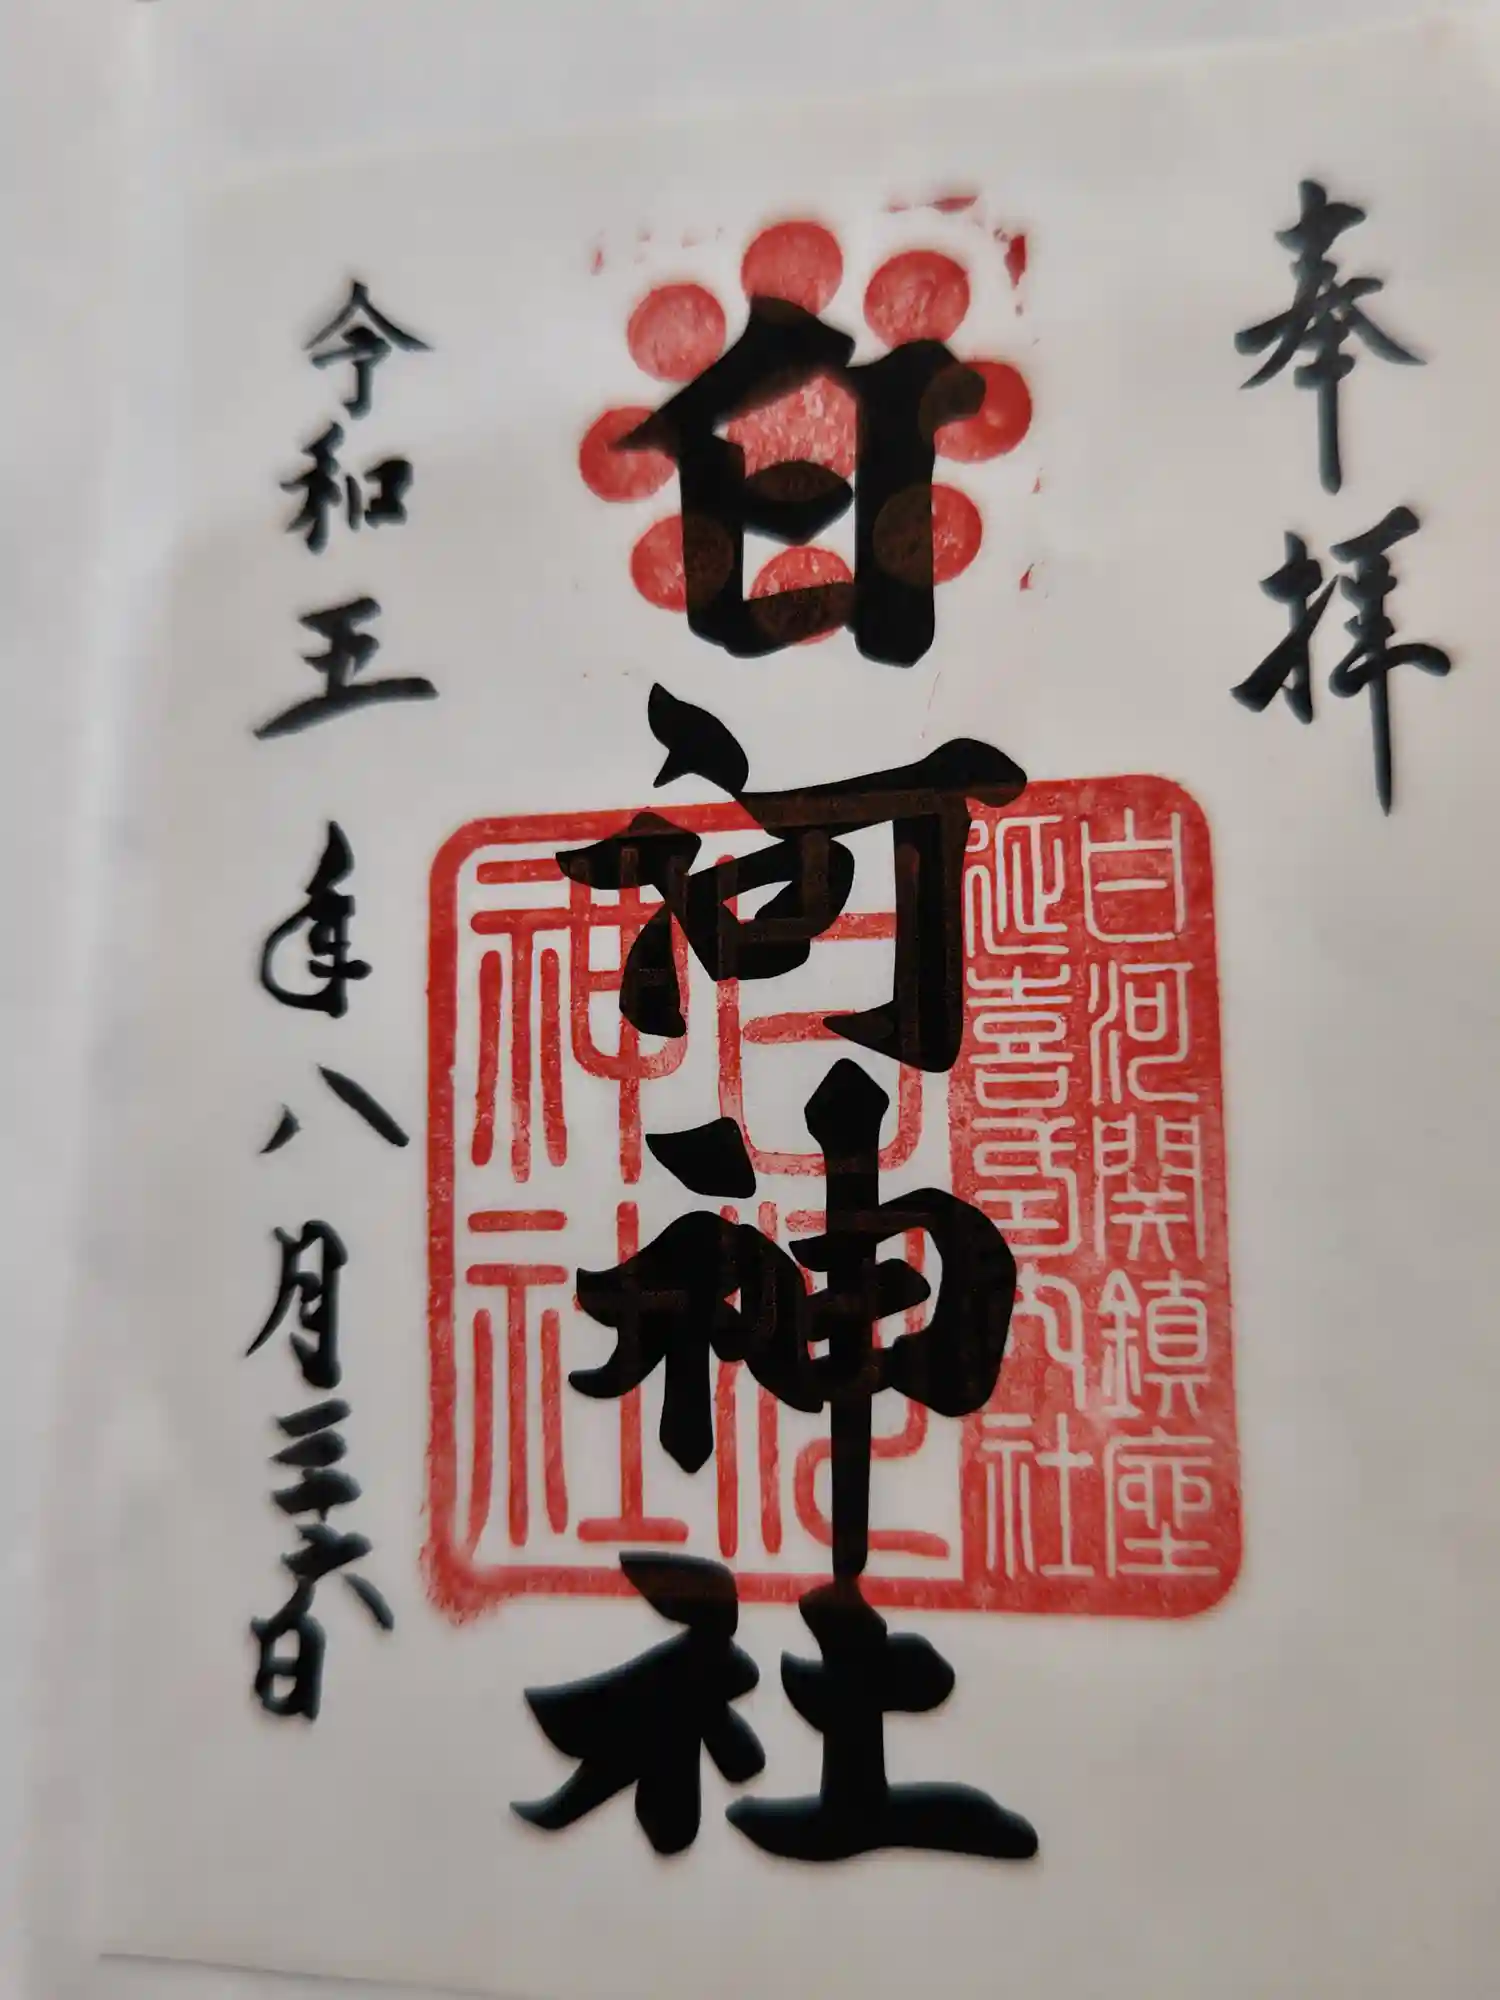 奉拝
白河神社
白河関鎮座
延喜式内社
白河
神社
令和五年八月二十六日